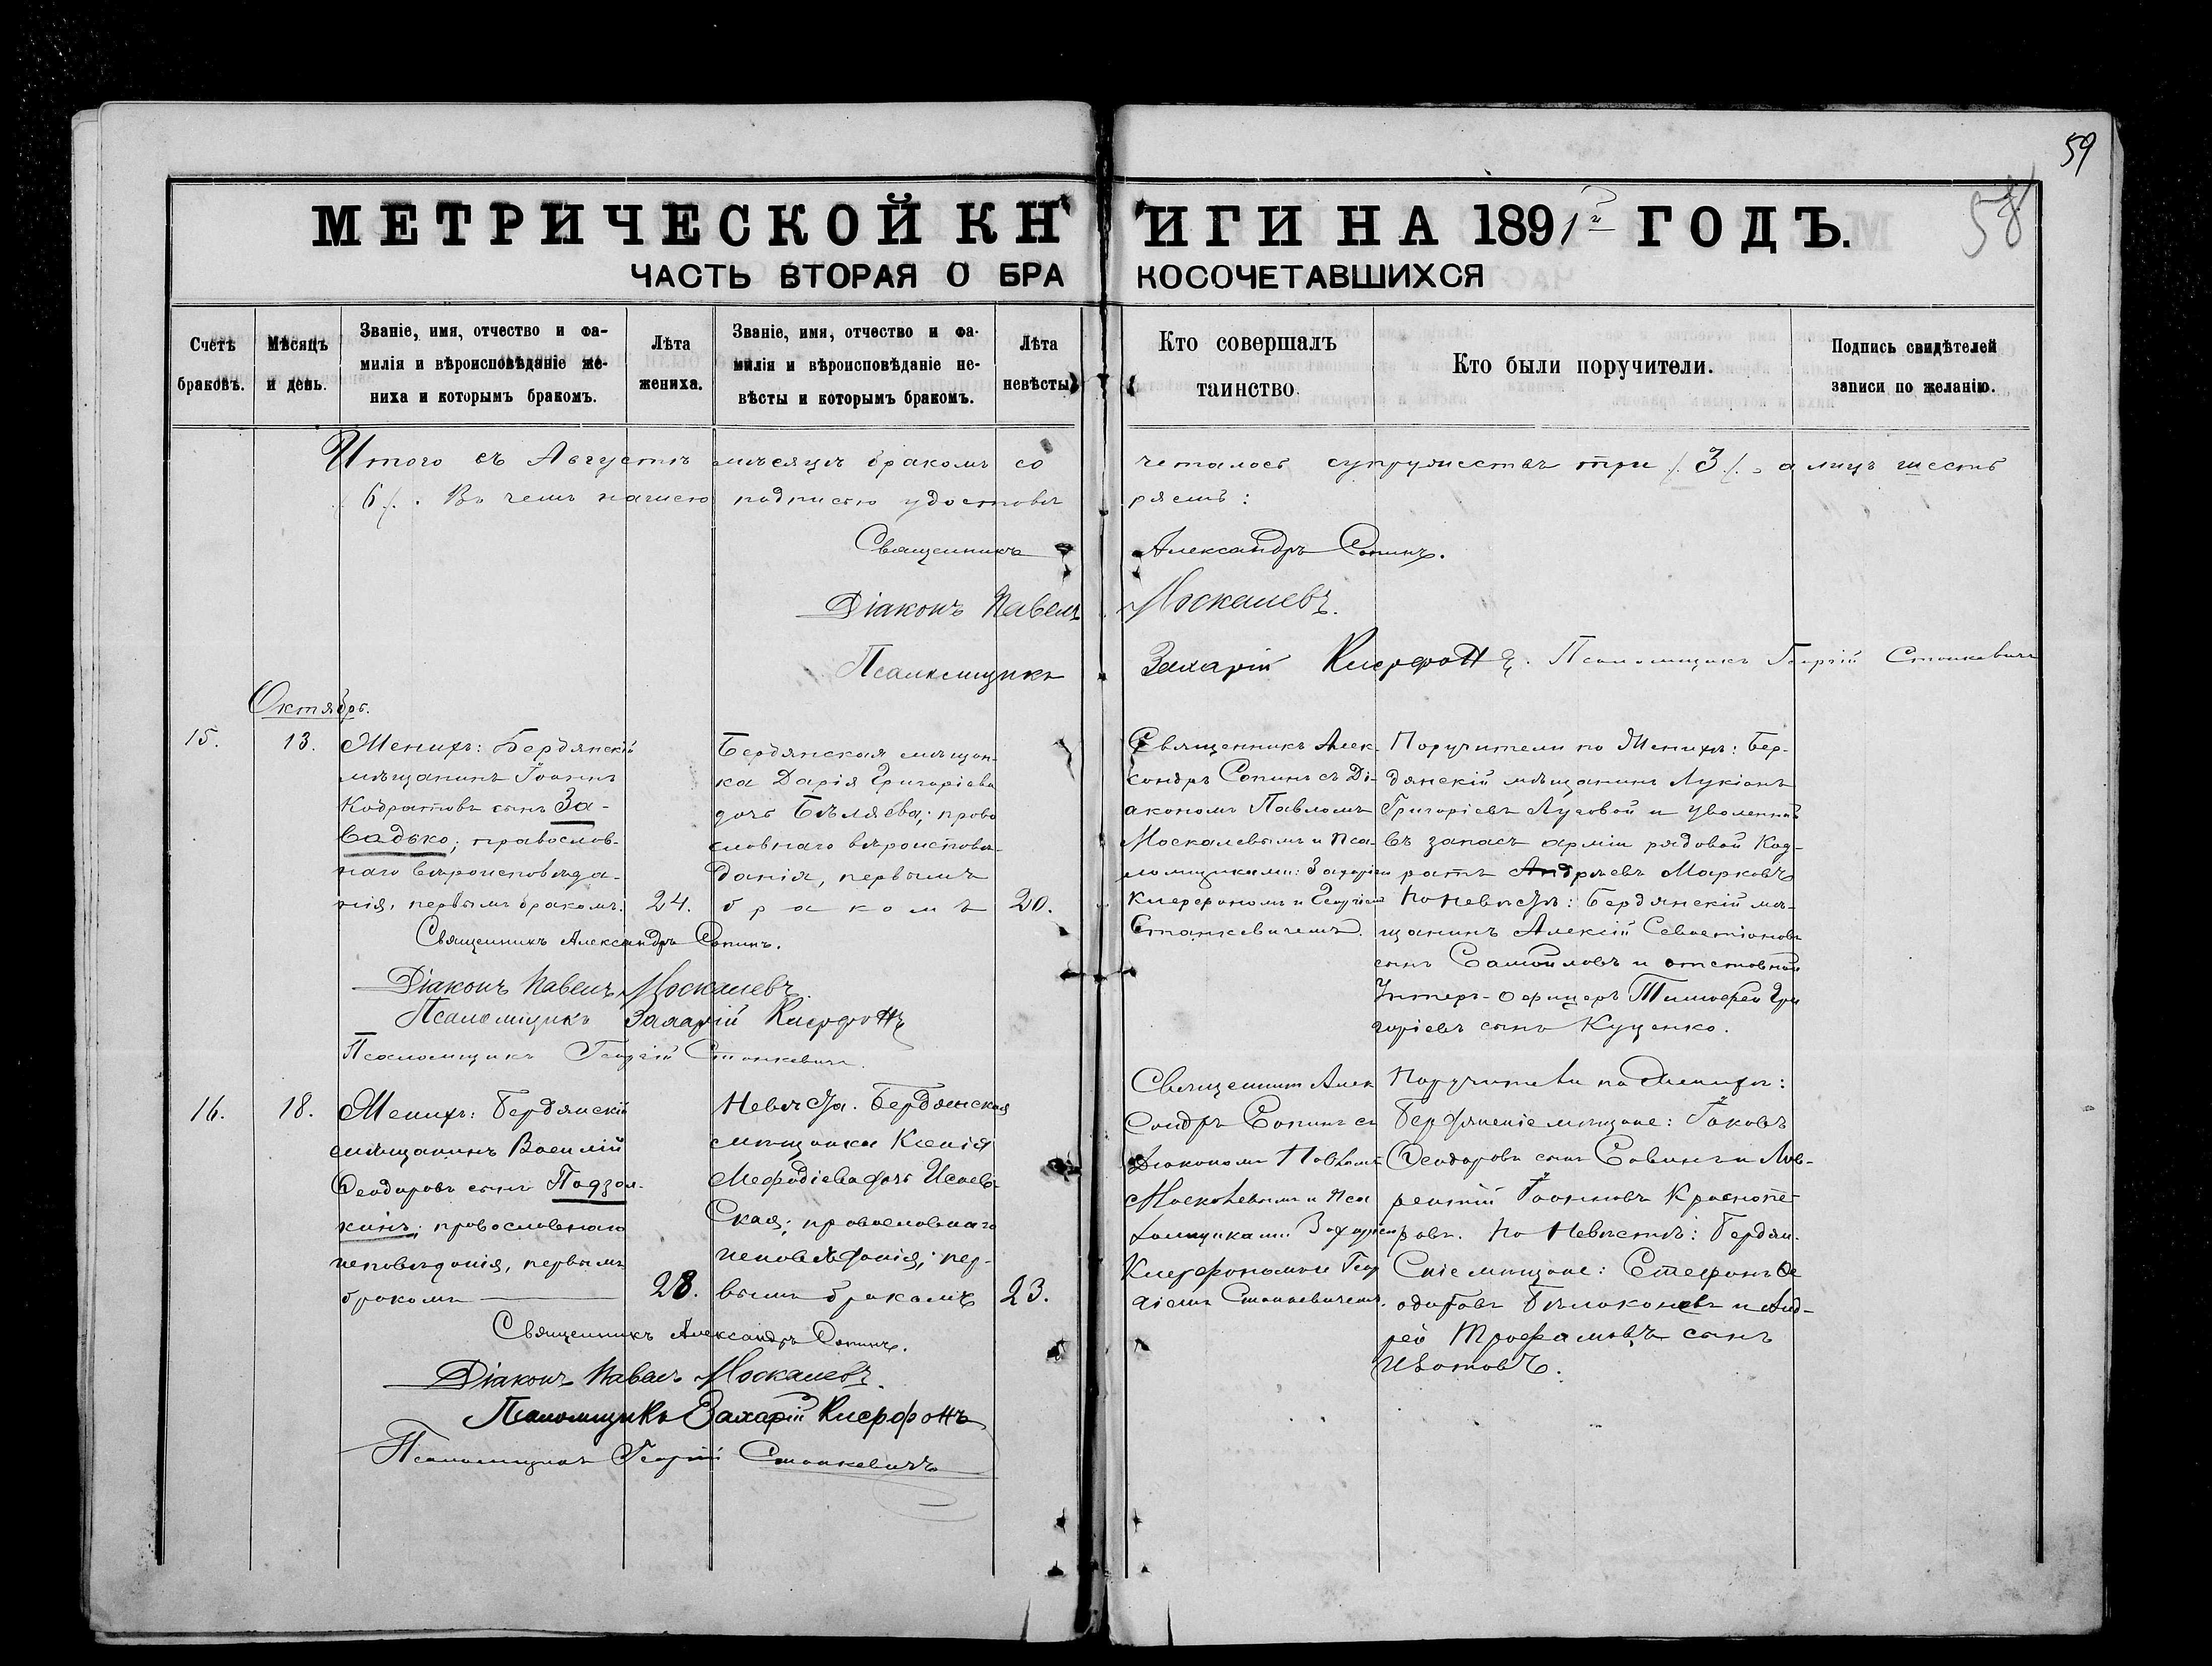 59
58
МЕТРИЧЕСКОЙ КНИГИ НА 1891й ГОДЪ.
ЧАСТЬ ВТОРАЯ О БРАКОСОЧЕТАВШИХСЯ
Счетъ браковъ.
Мѣсяцъ и день.
Званіе, имя, отчество и фа-
милія и вѣроисповѣданіе же-
ниха и которымъ бракомъ.
Лѣта
жениха.
Званіе, имя, отчество и фа-
милія и вѣроисповѣданіе не-
вѣсты и которымъ бракомъ.
Лѣта
невѣсты
Кто совершалъ
таинство.
Кто были поручители.
Подпись свидѣтелей
записи по желанію.
Итого въ Августѣ мѣсяцѣ бракомъ со четалось супружествъ три /.3/. а лицъ шесть
/.6/. Въ чемъ нашею подписью удостовѣ ряемъ:
Священникъ Александръ Сопинъ.
Діаконъ Павелъ Москалевъ.
Псаломщикъ Захарій Ксерфонъ. Псаломщикъ Георгій Станкевичъ
Октябрь.
15.
13.
Женихъ: Бердянскій
мѣщанинъ Іоаннъ
Кодратовъ сынъ За-
вадько; православ-
наго вѣроисповѣда-
нія, первымъ бракомъ.
24.
Бердянская мѣщан-
ка Дарія Григоріева
дочь Бѣляева; право
славнаго вѣроисповѣ-
данія, первымъ
бракомъ
20.
Священникъ Алек-
сандръ Сопинъ съ Ді-
акономъ Павломъ
Москалевымъ и Пса-
ломщиками: Захаріем
Ксерфономъ и Георгіем
Станкевичемъ.
Поручители по Женихѣ: Бер-
дянскій мѣщанинъ Лукіанъ
Григоріевъ Луговой и уволенный
въ запасъ арміи рядовой Код-
ратъ Андреевъ Марковъ
По Невѣстѣ: Бердянскій мѣ-
щанинъ Алексій Севастіановъ
сынъ Самойловъ и отставной
Унтеръ-Офицеръ Тимофей Гри
горіевъ сынъ Куценко.
Священникъ Александръ Сопинъ.
Діаконъ Павелъ Москалевъ.
Псаломщикъ Захарій Ксерфонъ
Псаломщикъ Георгій Станкевичъ.
16.
18.
Женихъ: Бердянскій
мѣщанинъ Василій
Ѳеодоровъ сынъ Подзол-
кинъ; православнаго
исповѣданія, первымъ
бракомъ
28.
Невѣста. Бердянская
мѣщанка Ксенія
Мефодіева дочь Исаев-
ская; православнаго
исповѣданія; пер-
вымъ бракомъ
23.
Священникъ Алек
сандръ Сопинъ съ
Діакономъ Павломъ
Москалевымъ и Пса
ломщиками Захаріем
Ксерфономъ и Геор
гіемъ Станкевичемъ.
Поручители по Женихѣ:
Бердянскіе мѣщане: Іаковъ
Ѳеодоровъ сынъ Савинъ и Лав-
рентій Іоанновъ Краснопе-
ровъ. По Невѣстѣ: Бердян-
скіе мѣщане: Стефанъ Ѳе
одоровъ Бѣлоконевъ и Анд-
рей Трофимовъ сынъ
Изотовъ.
Священникъ Александръ Сопинъ.
Діаконъ Павелъ Москалевъ.
Псаломщикъ Захарій Ксерфонъ
Псаломщикъ Георгій Станкевичъ